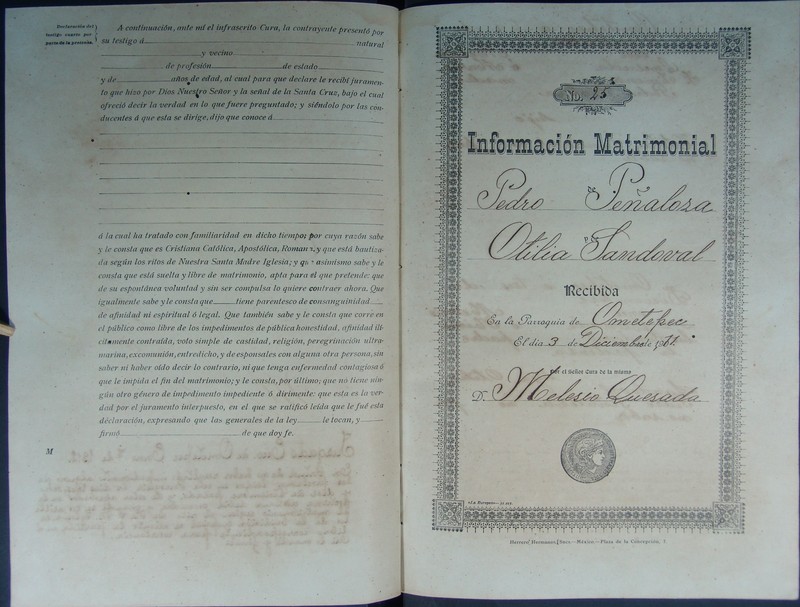 Declaración del
testigo cuarto por
parte de la pretensa.
A continuación, ante mí el infrascrito Cura, la contrayente presentó por
su testigo á natural
y vecino
de profesión de estado
y de años de edad, al cual para que declare le recibí juramen-
to que hizo por Dios Nuestro Señor y la señal de la Santa Cruz, bajo el cual
ofreció decir la verdad en lo que fuere preguntado; y siéndolo por las con-
ducentes á que esta se dirige, dijo que conoce á
á la cual ha tratado con familiaridad en dicho tiempo; por cuya razón sabe
y le consta que es Cristiana Católica, Apostólica, Romana, y que está bautiza-
da según los ritos de Nuestra Santa Madre Iglesia; y que asimismo sabe y le
consta que está suelta y libre de matrimonio, apta para el que pretende: que
de su espontánea voluntad y sin ser compulsa lo quiere contraer ahora. Que
igualmente sabe y le consta que tiene parentesco de consanguinidad
de afinidad ni espiritual ó legal. Que también sabe y le consta que corre en
el público como libre de los impedimentos de pública honestidad, afinidad ilí-
citamente contraída, voto simple de castidad, religión, peregrinación ultra-
marina, excomunión, entredicho, y de esponsales con alguna otra persona, sin
saber ni haber oído decir lo contrario, ni que tenga enfermedad contagiosa ó
que le impida el fin del matrimonio; y le consta, por último; que no tiene nin-
gún otro género de impedimento impediente ó dirimente: que esta es la ver-
dad por el juramento interpuesto, en el que se ratificó leída que le fué esta
declaración, expresando que las generales de la ley le tocan, y
firmó de que doy fe.
M
No. 25
Información Matrimonial
DE
Pedro Peñaloza
Otilia Sandoval
Recibida
En la Parroquia de Ometepec
El día 3 de Diciembre de
Por el Señor Cura de la misma
D. Melesio Quesada
Herrero Hermanos, Sucs.—México.—Plaza de la Concepción,